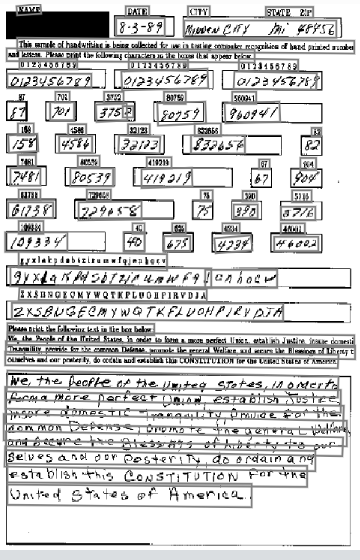 NAME DATE CITY STATE ZIP
8-3-89 MINDEN CITY Mi 48456
This sample of handwriting is being collected for use in testing computer recognition of hand printed numbers
and letters. Please print the following characters in the boxes that appear below.
0123456789 0123456789 0123456789
0123456789 0123456789 0123456789
87 701 3752 80759 960941
87 701 3752 80759 960941
158 4586 32123 832656 82
158 4586 32123 832656 82
7481 80539 419219 67 904
7481 80539 419219 67 904
61738 729658 75 390 5716
61738 729658 75 390 5716
109334 40 675 4234 46002
109334 40 675 4234 46002
gyxlakpdsbtzirumwfqjenhocv
ZXSBUGECMYWQTKFLUOHPIRVDJA
ZXSBUGECMYWQTKFLUOHPIRVDJA
Please print the following text in the box below:
We, the People of the United States, in order to form a more perfect Union, establish Justice, insure domestic
Tranquility, provide for the common Defense, promote the general Welfare, and secure the Blessings of Liberty to
ourselves and our posterity, do ordain and establish this CONSTITUTION for the United States of America.
We, the People of the United States, in order to
form a more perfect Union, establish Justice,
insure domestic Tranquility, provide for the
common Defense, promote the general Welfare,
and secure the Blessings of Liberty to our
selves and our Posterity, do ordain and
establish this CONSTITUTION for the
United States of America.